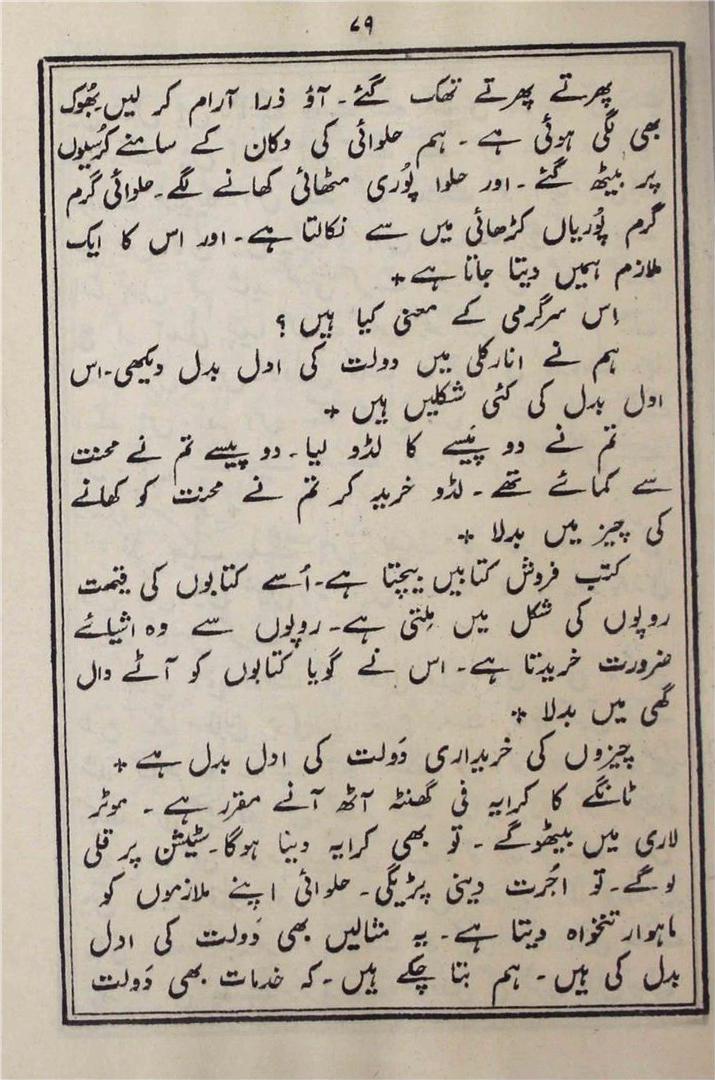 ۷۹
پھرتے پھرتے تھک گئے۔ آؤ ذرا آرام کر لیں بھُوک
بھی لگی ہوئی ہے۔ ہم حلوائی کی دکان کے سامنے کرُسیوں
پر بیٹھ گئے۔ اور حلوا پُوری مٹھائی کھانے لگے۔ حلوائی گرم
گرم پُوریاں کڑھائی میں سے نکالتا ہے۔ اور اس کا ایک
ملازم ہمیں دیتا جاتا ہے+
اِس سرگرمی کے معنی کیا ہیں ؟
ہم نے انارکلی میں دولت کی ادل بدل دیکھی۔ اس
ادل بدل کی کئی شکلیں ہیں +
تم نے دو پَیسے کا لڈو لیا۔ دو پیسے تم نے محنت
سے کمائے تھے۔ لڈو خرید کر تم نے محنت کو کھانے
کی چیز میں بدلا +
کتب فروش کتابیں بیچتا ہے۔ اُسے کتابوں کی قیمت
روپوں کی شکل میں مِلتی ہے۔ روپوں سے وہ اشیائے
ضرورت خریدتا ہے۔ اس نے گویا کتابوں کو آٹے دال
گھی میں بدلا +
چیزوں کی خریداری دَولت کی ادل بدل ہے +
ٹانگے کا کرایہ فی گھنٹہ آٹھ آنے مقرر ہے۔ موٹر
لاری میں بیٹھوگے۔ تو بھی کرایہ دینا ہوگا۔ سٹیشن پر قلی
لو گے۔ تو اُجرت دینی پڑیگی۔ حلوائی اپنے ملازموں کو
ماہوار تنخواہ دیتا ہے۔ یہ مثالیں بھی دَولت کی ادل
بدل کی ہیں۔ ہم بتا چکے ہیں۔ کہ خدمات بھی دَولت